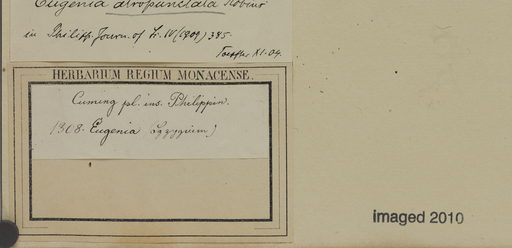 Eugenia atropunctata
in Philipp. Journ. of Sc. IV (1909) 385.
XI.09.
HERBARIUM REGIUM MONACENSE.
Cuming pl. ins. Philippin.
1308. Eugenia (Syzygium)
imaged 2010